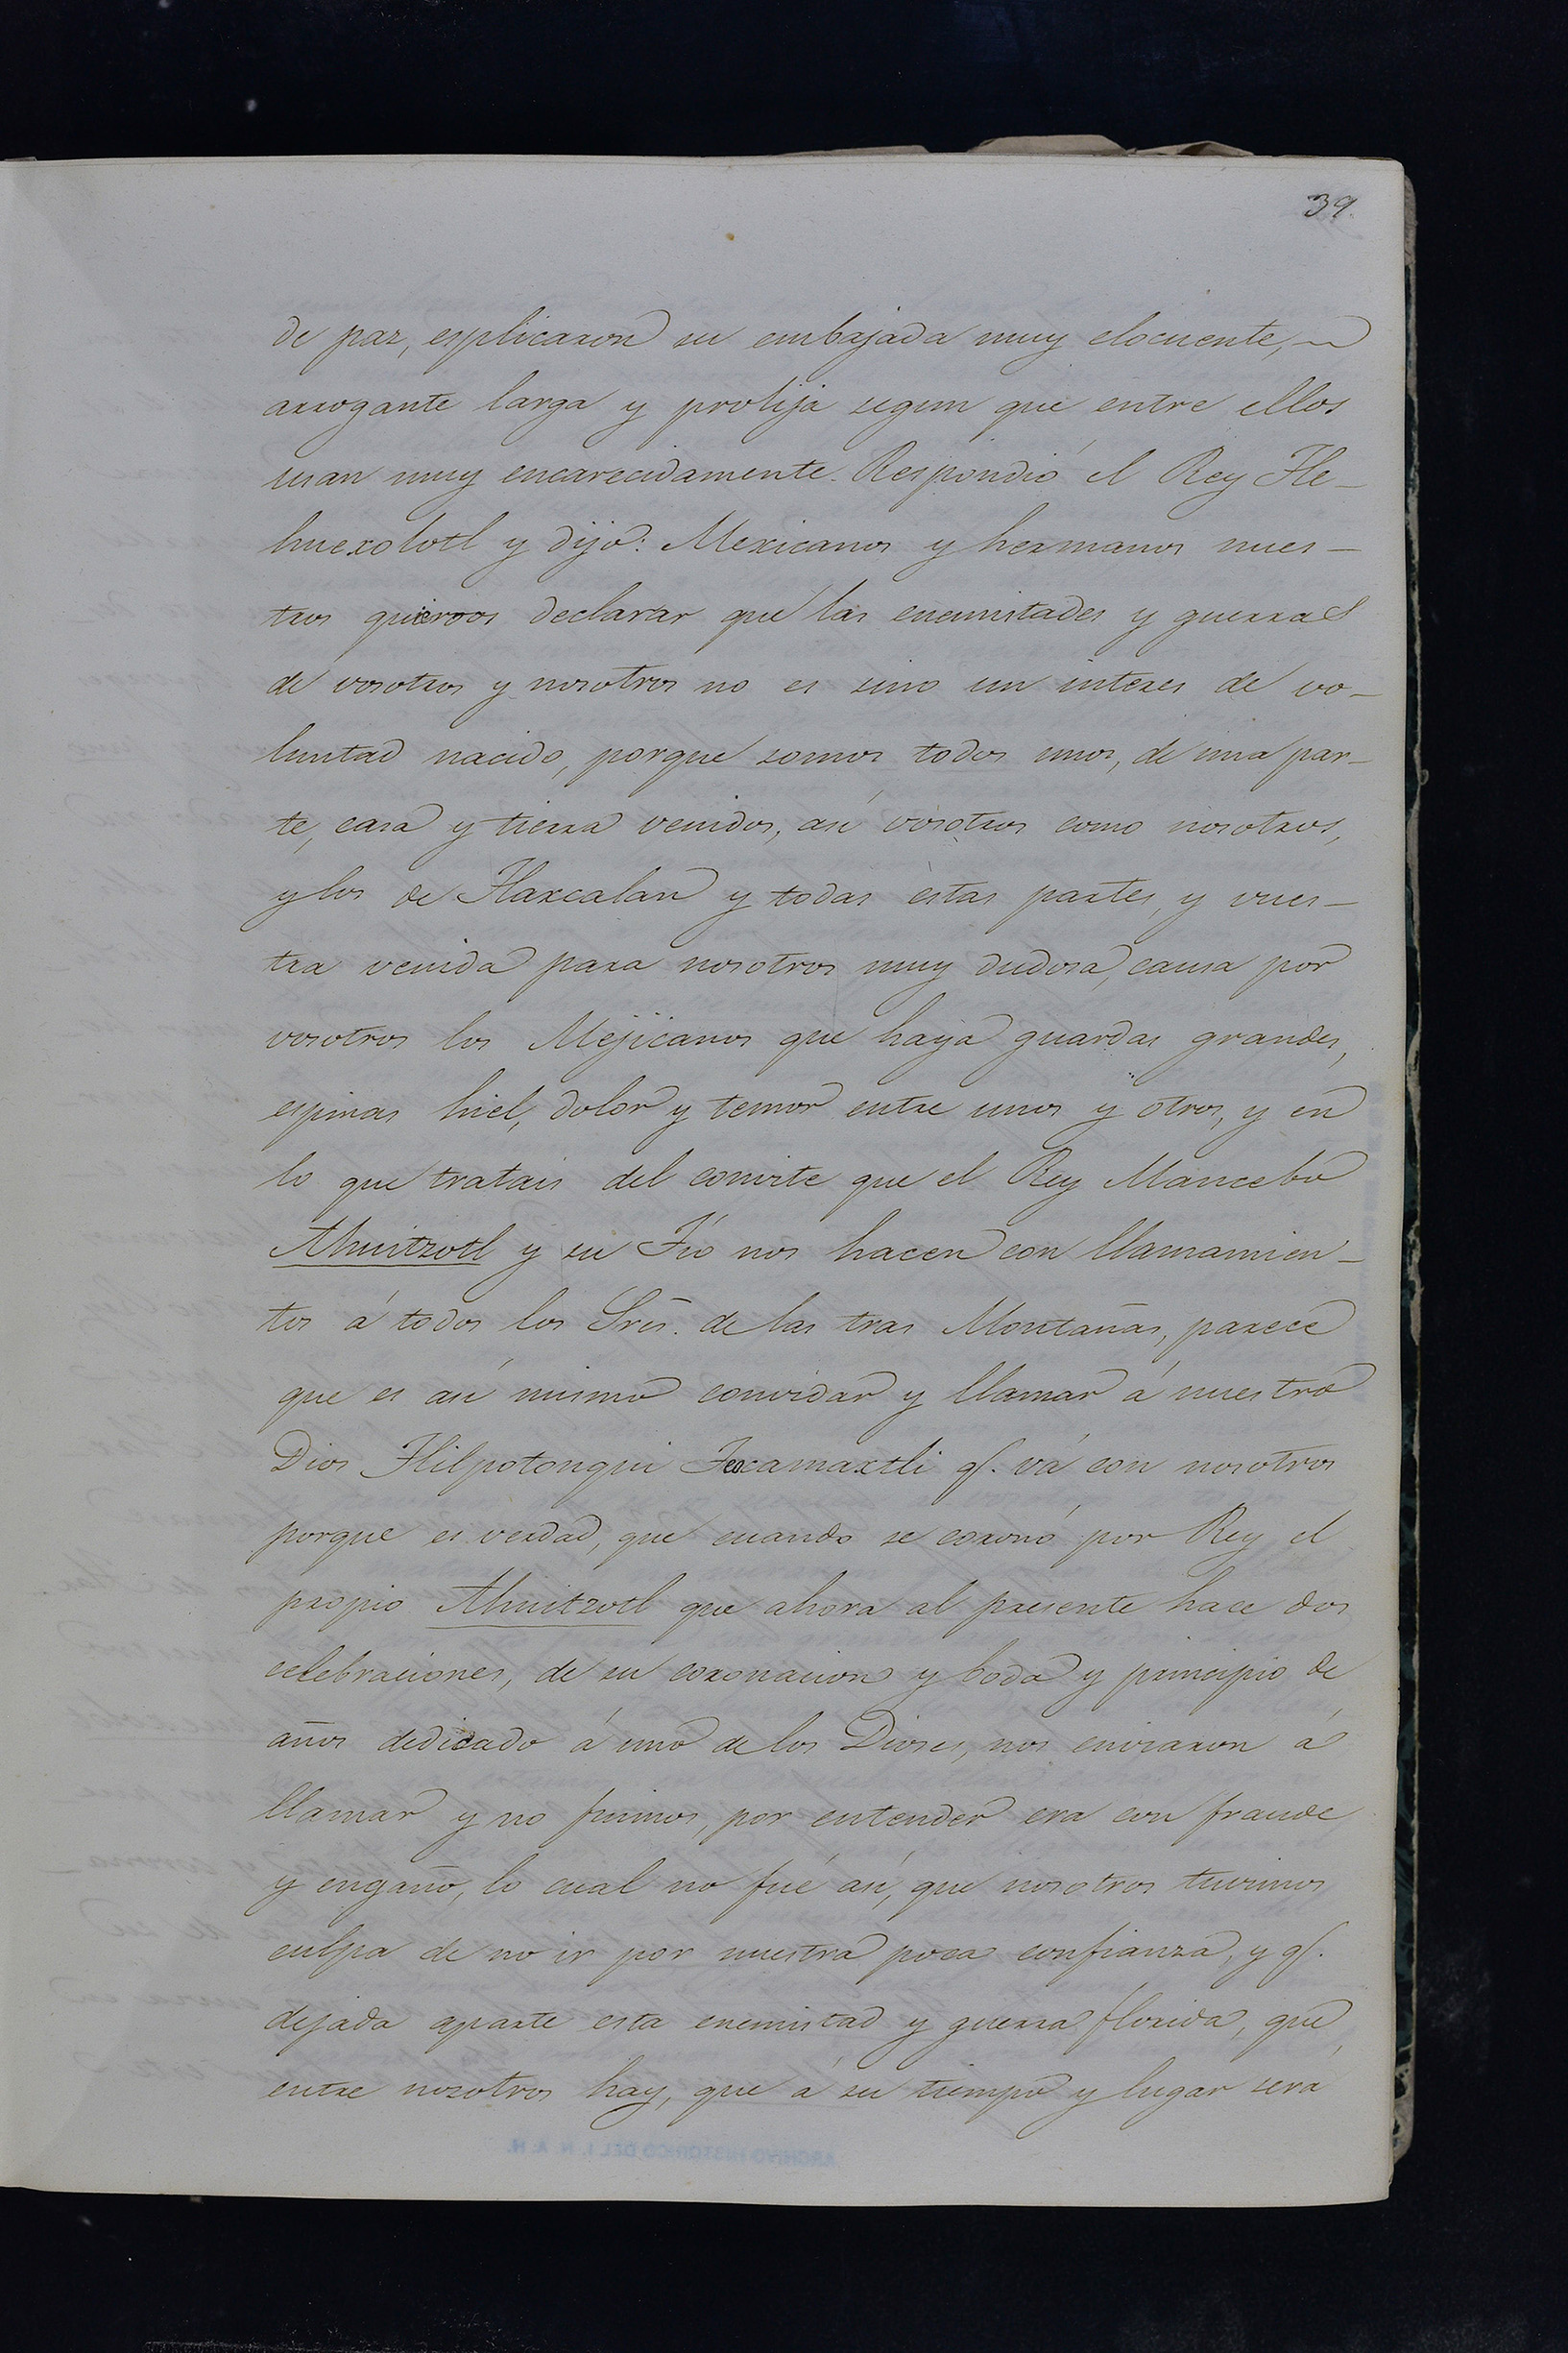 39.
de paz, esplicaron su embajada muy elocuente,
arrogante larga y prolija segun que entre ellos
usan muy encarecidamente. Respondió el Rey Tle-
huexolotl y dijo: Mexicanos y hermanos nues-
tros quieroos declarar que las enemistades y guerras
de vosotros y nosotros no es sino un interes de vo-
luntad nacido, porque somos todos unos, de una par-
te, casa y tierra venidos, así vosotros como nosotros,
y los de Tlaxcalan y todas estas partes, y vues-
tra venida para nosotros muy dudosa, causa por
vosotros los Mejicanos que haya guardas grandes,
espinas hiel, dolor y temor entre unos y otros, y en
lo que tratais del convite que el Rey Mancebo
Ahuitzotl y su Tío nos hacen con llamamien-
tos á todos los Sres. de las tras Montañas, parece
que es así mismo convidar y llamar á nuestro
Dios Tlilpotonqui Texcamaxtli q. vá con nosotros
porque es verdad, que cuando se coronó por Rey el
propio Ahuitzotl que ahora al presente hace dos
celebraciones, de su coronacion y boda y principio de
años dedicado á uno de los Dioses, nos enviaron á
llamar y no fuimos, por entender era con fraude
y engaño, lo cual no fué así, que nosotros tuvimos
culpa de no ir por nuestra poca confianza, y q.
dejada aparte esta enemistad y guerra florida, que
entre nosotros hay, que á su tiempo y lugar será
ARCHIVO HISTORICO DEL I. N. A. H.